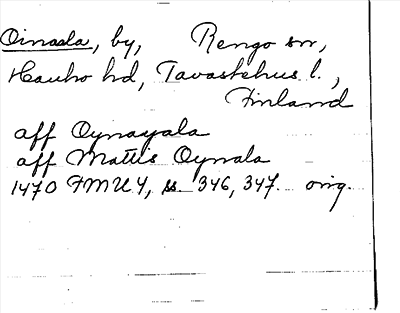 Oinaala, by, Rengo sn,
Hauho hd, Tavastehus l.,
Finland
aff Oynayala
aff Mattis Oynala
1470 FMU 4, ss. 346, 347. orig.